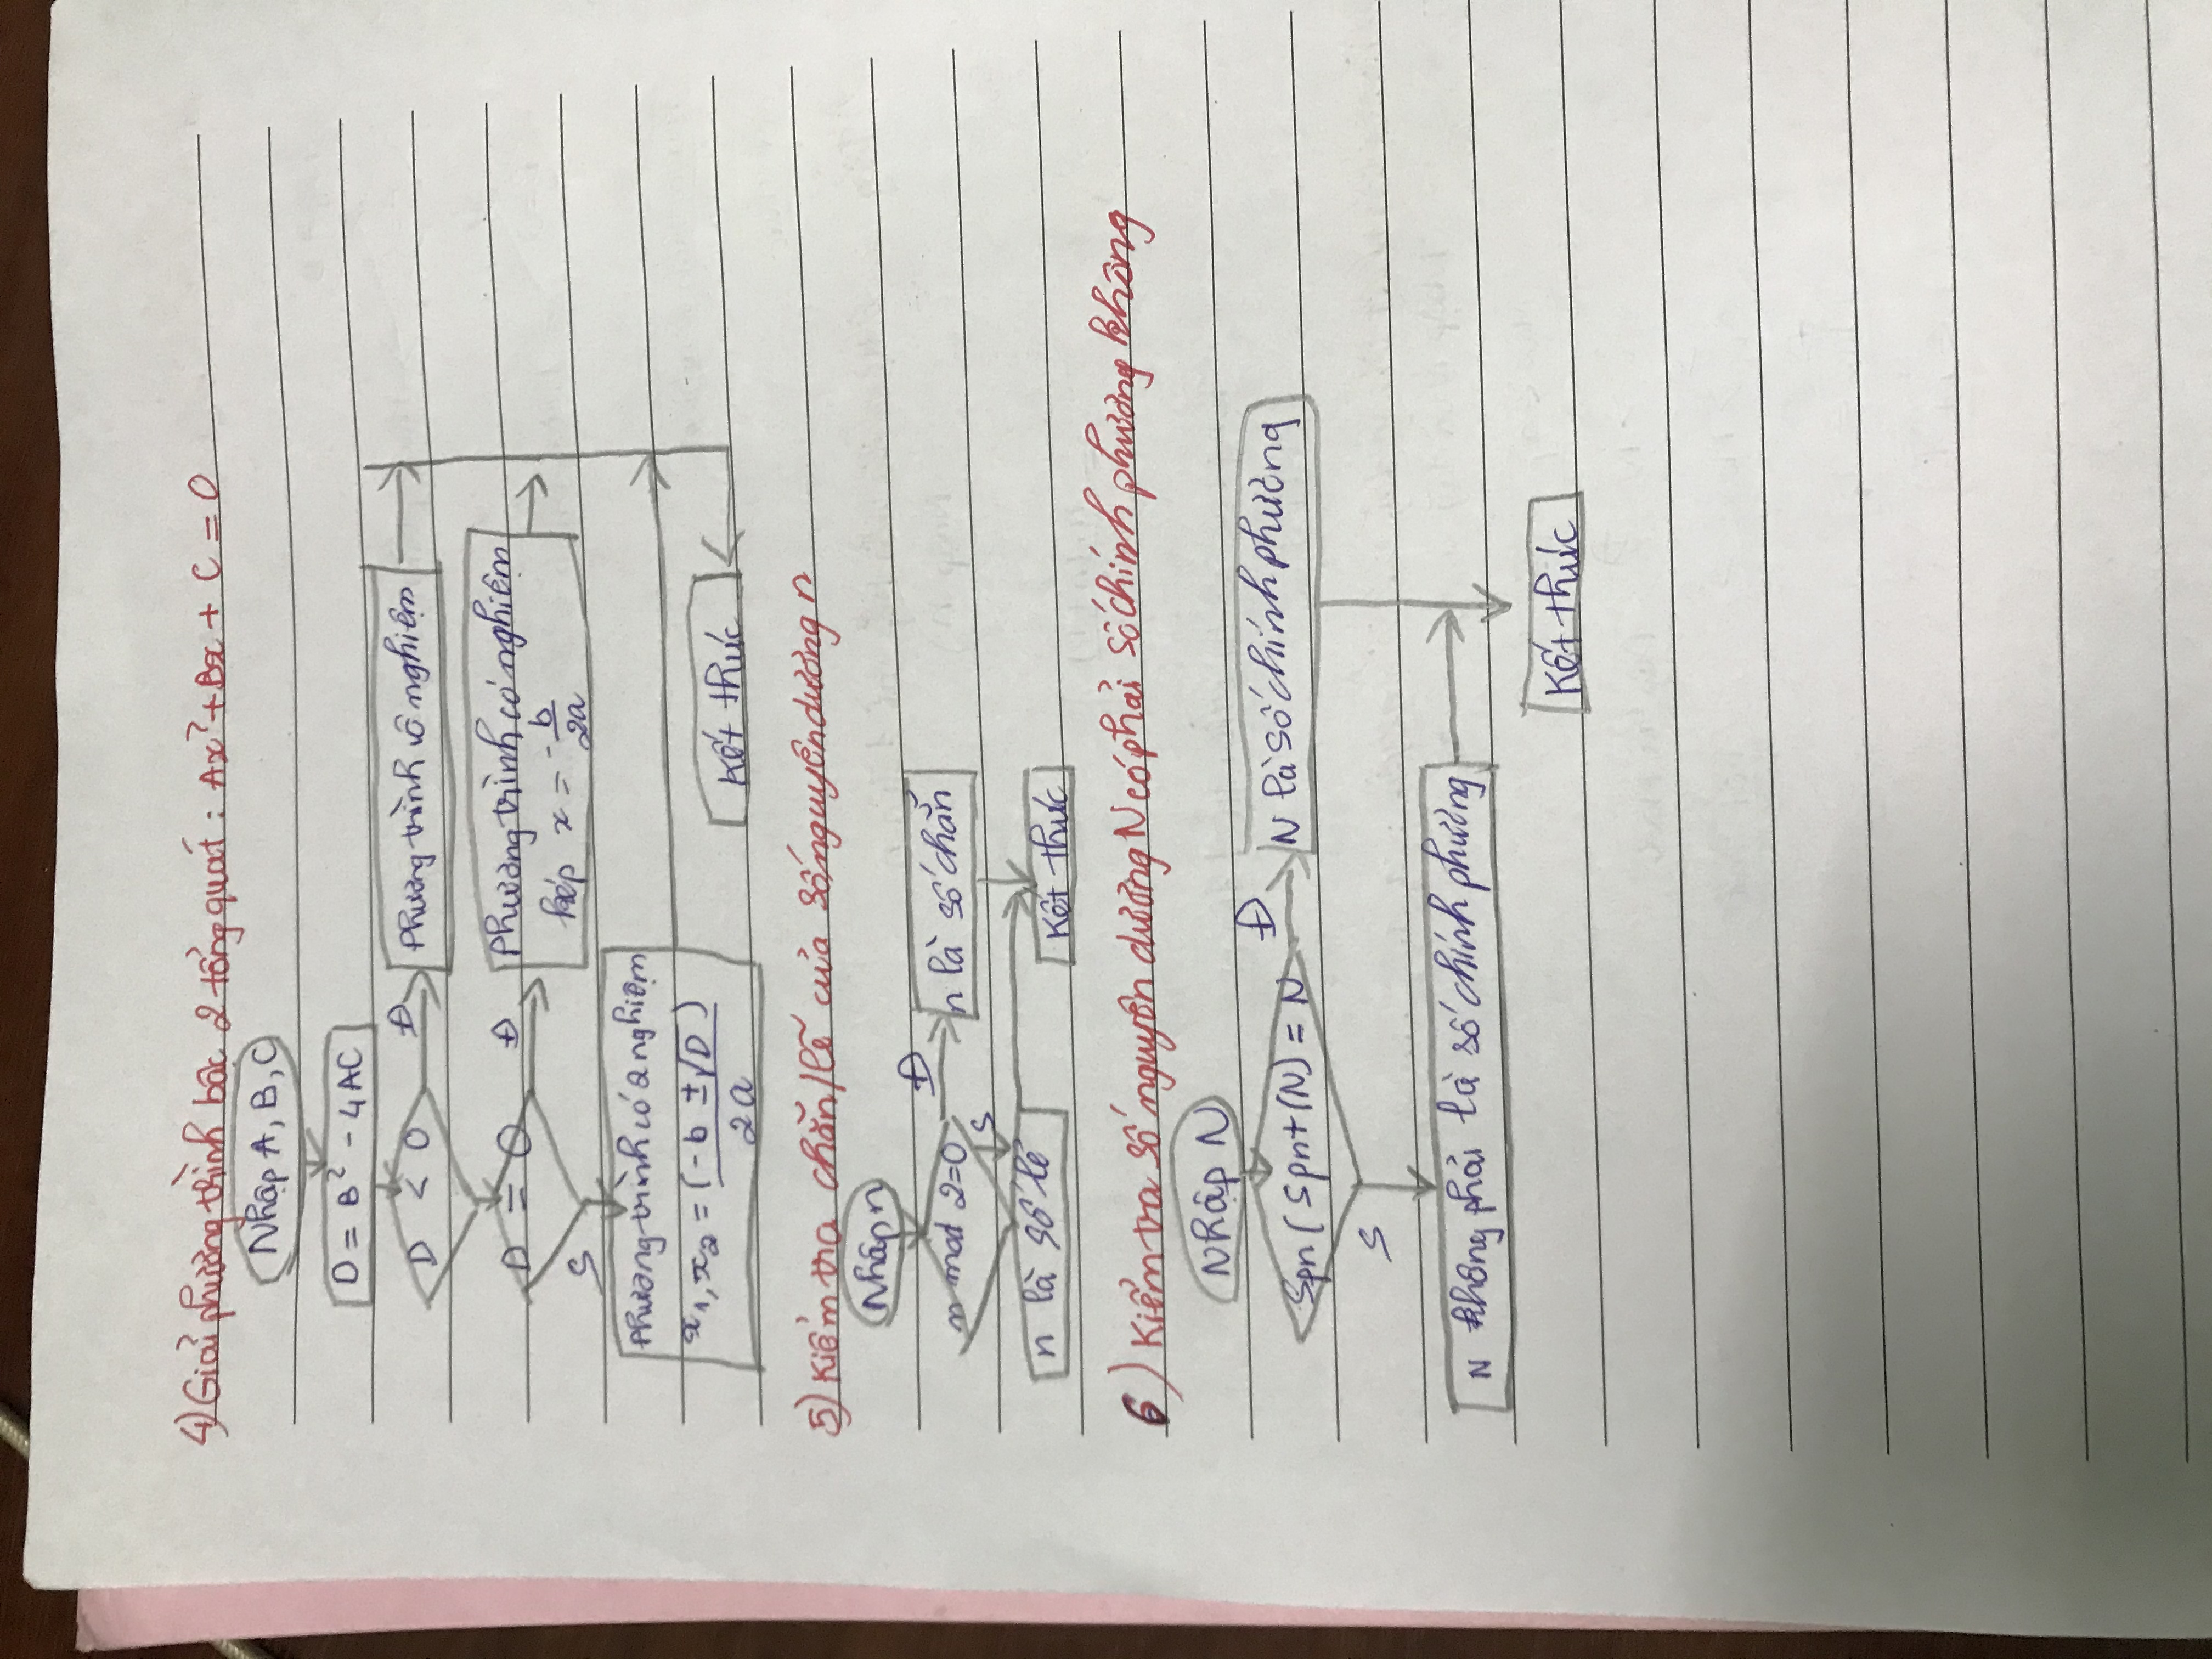 4) Giải phương thình bậc 2 tổng quát: Ax² + Bx + C = 0
Nhập A, B, C
D = B² - 4AC
D < 0
Đ
Phương trình vô nghiệm
D = 0
Đ
Phương trình có nghiệm
kép x = - b/2a
S
Phương trình có 2 nghiệm
x₁, x₂ = (-b ± √D) / 2a
Kết thúc
5) Kiểm tra chẵn/lẽ của số nguyên dương n
Nhập n
n mod 2=0
Đ
n là số chẵn
S
n là số lẽ
Kết thúc
6) Kiểm tra số nguyên dương N có phải số chính phương không
Nhập N
Spn(Spnt(N) = N
Đ
N là số chính phương
S
N không phải là số chính phương
Kết thúc